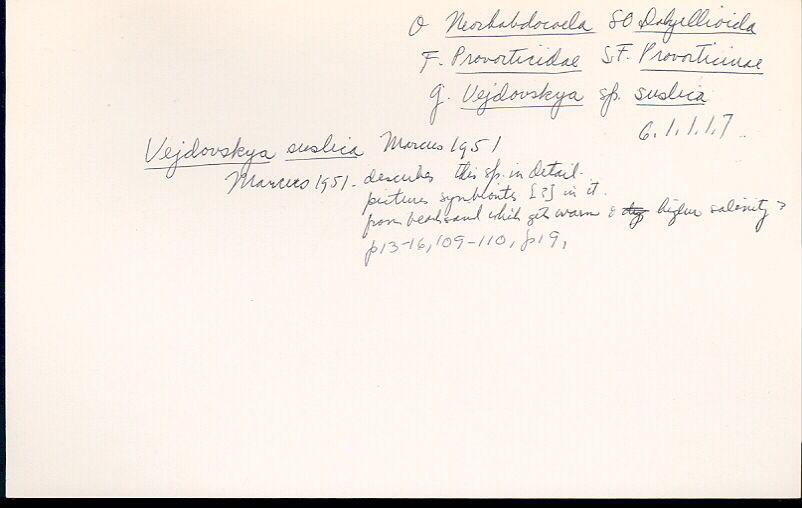 O Neorhabdocoela SO Dalyellioida
F. Provorticidae S.F. Provorticinae
g. Vejdovskya sp. suslica
6.1.1.1.7
Vejdovskya suslica Marcus 1951
Marcus 1951 - describes this sp. in detail.
pictures symbionts [?] in it.
from beach sand which gets warm & higher salinity >
p13-16, 109-110,